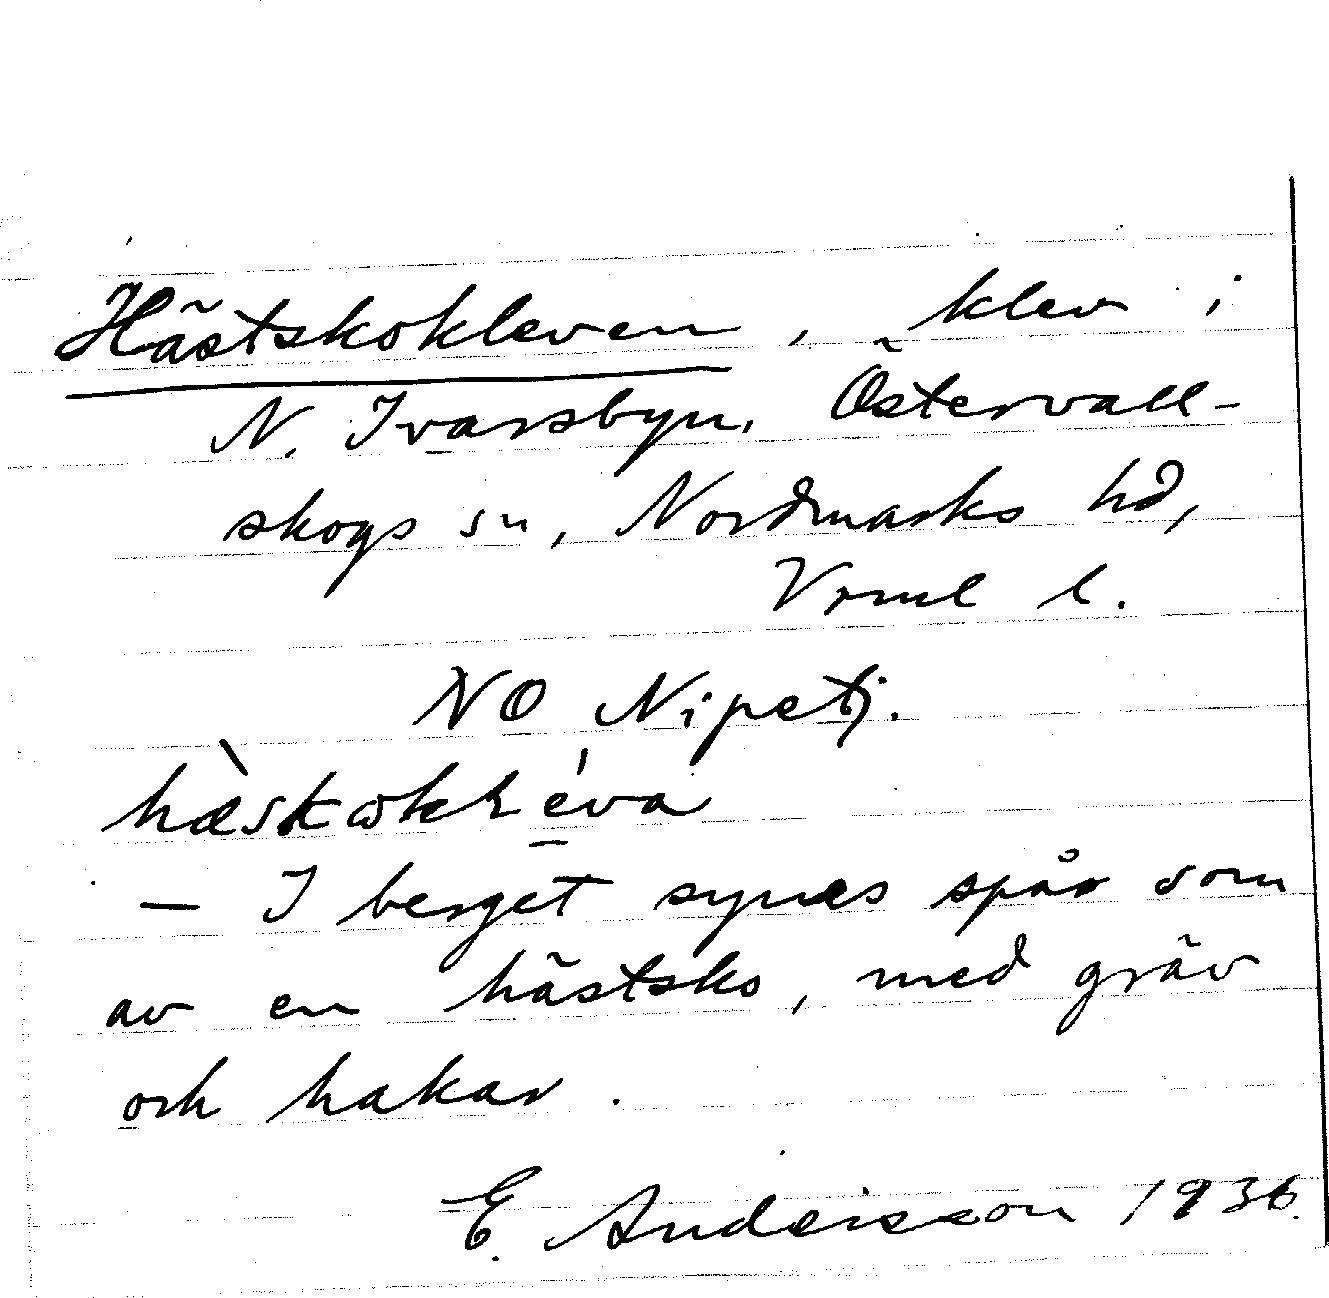 Hästskokleven, klev i
N. Ivarsbyn, Östervall-
skogs sn, Nordmarks hd,
Vrml l.
NO Nipetj.
hæ̀skωkléva
— I berget synes spår som
av en hästsko, med gräv
och hakar.
E. Andersson 1936.